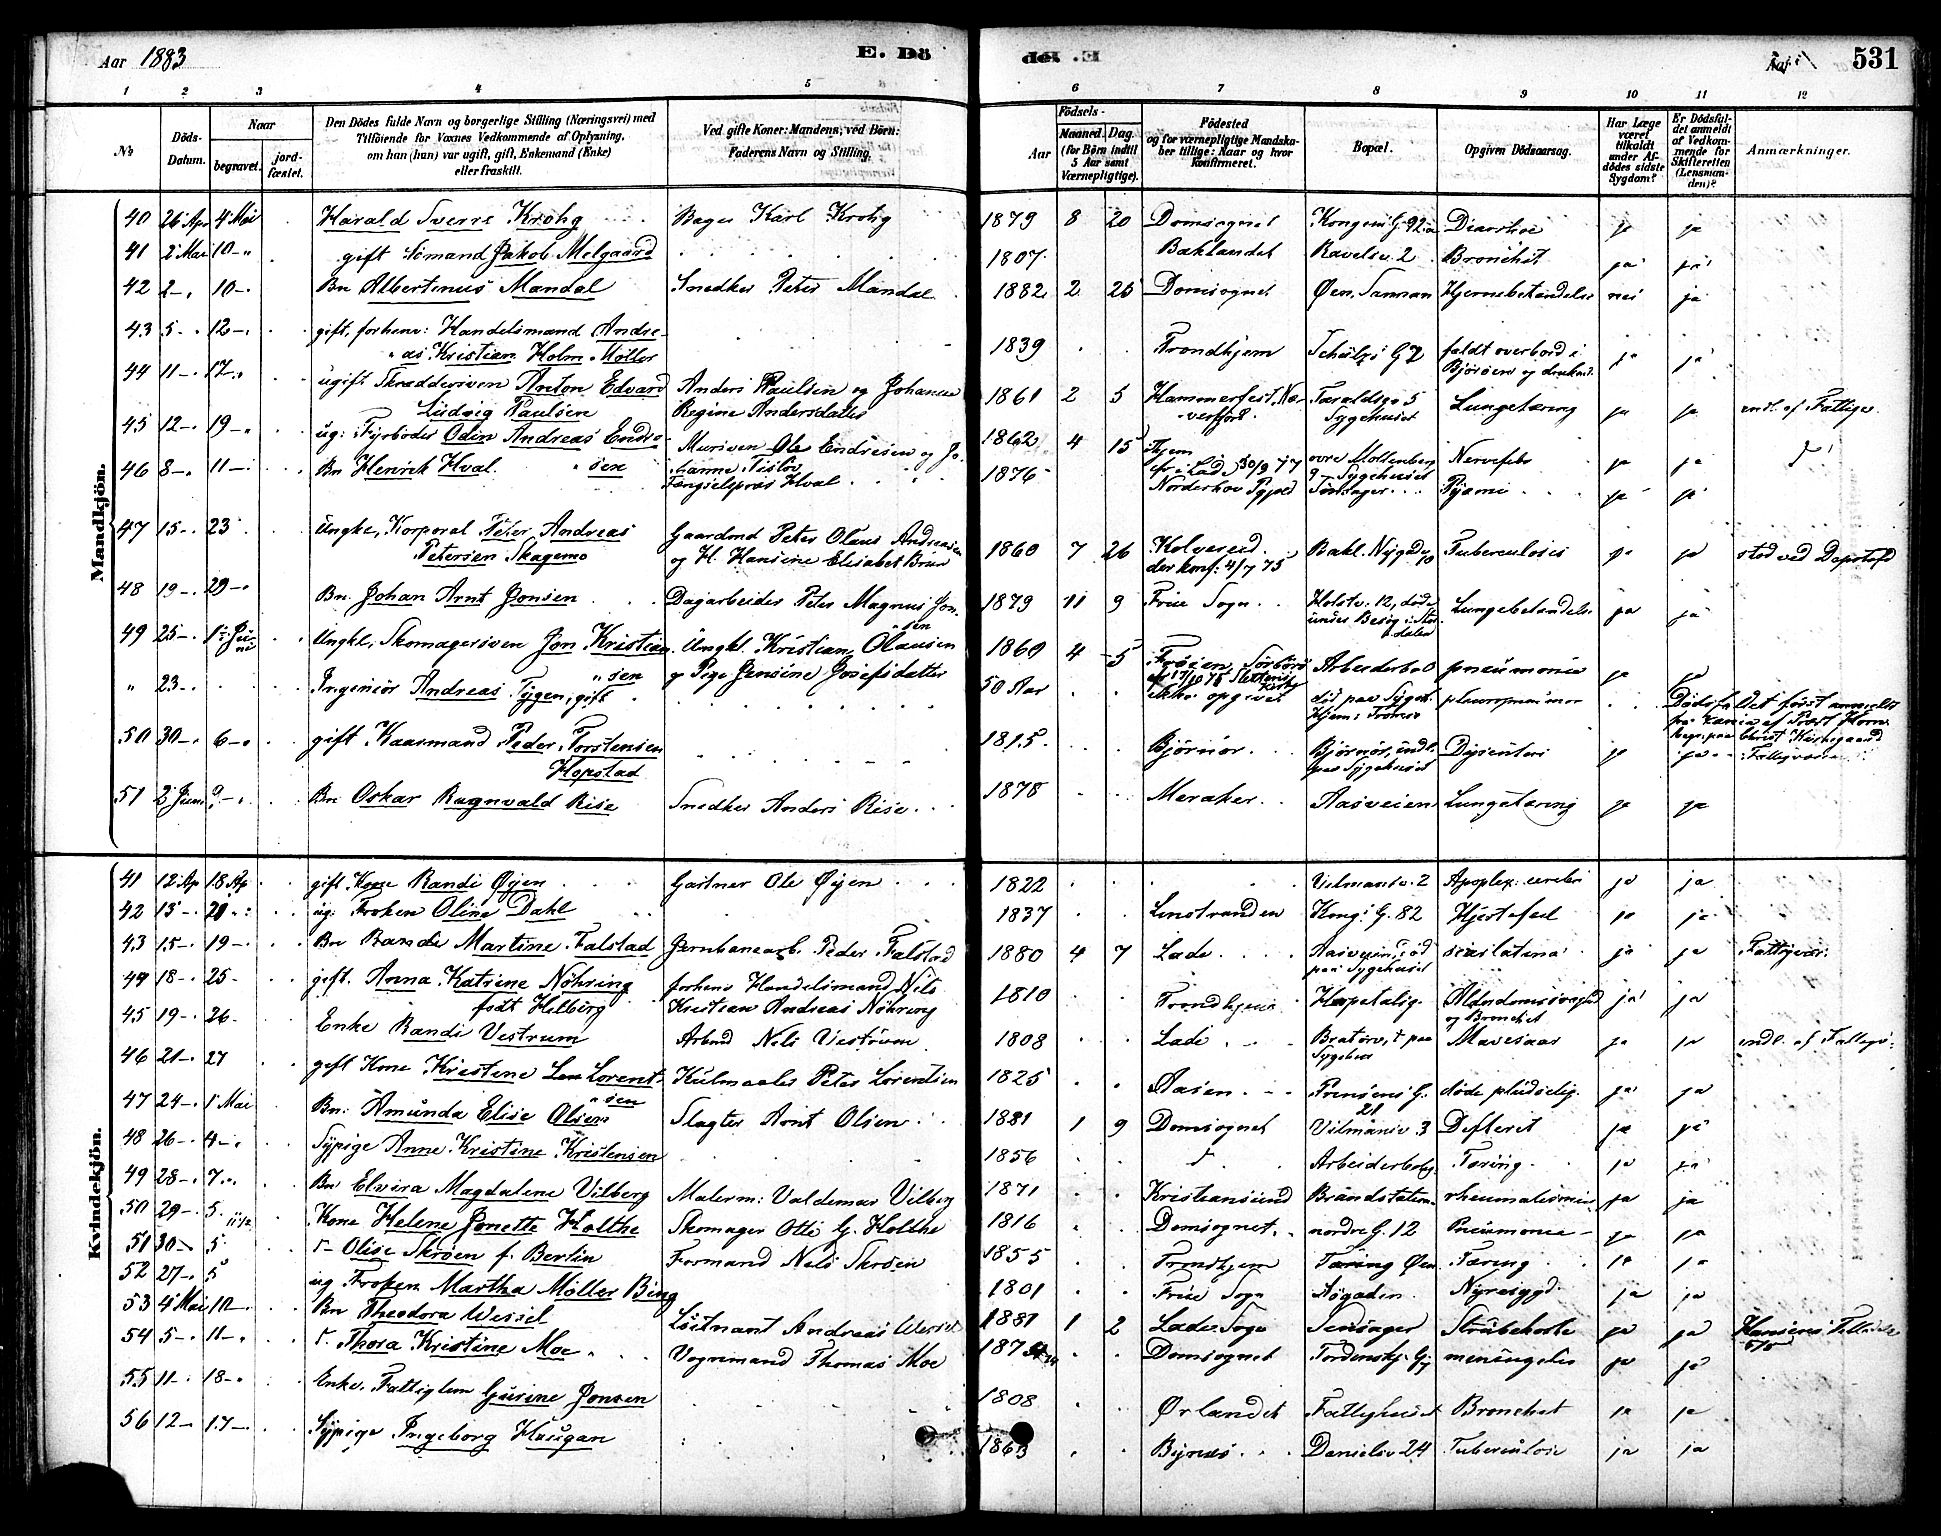 Aar 1883 E. Dö
döde. E Aar 531
1 2 3 4 5 6 7 8 9 10 11 12
№ Döds-Datum. Naar begravet. jordfæstet. Den Dödes fulde Navn og borgerlige Stilling (Næringsvei) med Tilföiende for Voxnes Vedkommende af Oplysning, om han (hun) var ugift, gift, Enkemand (Enke) eller fraskilt. Ved gifte Koner: Mandens, ved Börn: Faderens Navn og Stilling. Födsels- Aar Maaned. Dag. (for Börn indtil 5 Aar samt Værnepligtige). Födested og for værnepligtige Mandskaber tillige: Naar og hvor Konfirmeret. Bopæl. Opgiven Dödsaarsag. Har Læge været tilkaldt under Afdödes sidste Sygdom? Er Dödsfaldet anmeldt af Vedkommende for Skifteretten (Lensmanden)? Anmærkninger.
Mandkjön.
40 26 Apr 4 Mai Harald Sverre Krohg Bager Karl Krohg 1879 8 20 Domsognet Kongens G. 92 Diarrhoe ja ja
41 2 Mai 10 - gift Sömand Jakob Melgaard 1807 Baklandet Ravelsv. 2 Bronchit ja ja
42 2 - 10 - Bn Albertinus Mandal Snedker Peter Mandal 1882 2 25 Domsognet Øen. Hjernebetændelse nei ja
43 5 - 12 - gift, forhenv: Handelsmand Andreas Kristian Holm Møller 1839 Trondhjem Schultz G 7 faldt overbord i ja ja
44 11 - 17 - ugift Skræddersven Anton Edvard Ludvig Paulsen Anders Paulsen og Johanna Regine Andersdatter 1861 2 5 Hammerfest. Taraldsg 5 Sygehuset Lungetæring ja ja indl. af Fattigv.
45 12 - 19 - ug: Fyrböder Odin Andreas Endresen Mursven Ole Endresen og 1862 4 15 Thjem Lade 30/9 77 øvre Mollenberg 9 - Sygehuset Nervefeber ja ja
46 8 - 11 - Bn Henrik Hval Fængselspræs Hval 1876 Norderhov Pgjæld Pyæmi ja ja
47 15 - 23 Ungke, Korporal Peter Andreas Petersen Skagemo Gaardmd Peter Olaus Andreasen og H. Hansine Elisabet Brun 1860 7 26 Kolvereid. der konf: 4/7 75 Bakl. Nygade 10 Tuberculosis ja ja stod ved Depotafd
48 19 - 29 - Bn. Johan Arnt Jonsen Dagarbeider Peter Magnus Jonsen 1879 11 9 Frue Sogn Holstv: 12, døde under Besøg i Størdalen Lungebetændelse ja ja
49 25 - 1 Juni Ungkl, Skomagersven Jon Kristiansen Ungkl. Kristian Olausen og Pige Jensine Josefsdatter 1860 4 5 Frøien, 17/10 75 Arbeiderbo pneumonia ja ja
" 23 - Ingeniör Andreas Tygen, gift 50 Aar ikke opgivet død paa Sygeh. Hjem i Tromsø pleuropneumon Dödsfaldet först anmeldt fra Xania af Præst Horn. begr. paa Christ Kirkegaard
50 30 - 6 - gift Kaarmand Peder Torstensen Hopstad 1815 Bjørnør Bjørnør, indl. paa Sygehuset Dysenteri ja ja Fattigvæsen
51 2 Juni 9 - Bn Oskar Ragnvald Rise Snedker Anders Rise 1878 Meraker Aasveien Lungetæring ja ja
Kvindekjön.
41 12 Ap 18 Ap gift Kone Randi Øyen Gartner Ole Øyen 1822 Vilmansv. 2 Apoplex. cerebri ja ja
42 15 - 20 - ug: Froken Oline Dahl 1837 Leinstranden Kong: G. 82 Hjertefeil ja ja
43 15 - 19 - Bn Randi Martine Falstad Jernbanearb. Peder Falstad 1880 4 7 Lade Aasveien, död paa Sygehuset scarlatina ja ja Fattigvæs.
44 18 - 25 - gift. Anna Katrine Nöhring født Hilberg forhenv Handelsmand Nils Kristian Andreas Nöhring 1810 Trondhjem Hospitalsg. Alderdomssvaghed og Bronchit ja ja
45 19 - 26 - Enke Randi Vestrum Arbmd Nils Vestrum 1808 Lade Bratørv, † paa Sygehus Mavesaar ja ja indl. af Fattigv.
46 21 - 27 gift Kone Kristine Lorentsen Kulmaaler Peter Lorentsen 1825 Aasen Prinsens G. 21 døde pludselig ja ja
47 24 - 1 Mai Bn: Amunda Elise Olsen Slagter Arnt Olsen 1881 1 9 Domsognet Vilmansv. 3 Defterit ja ja
48 26 - 4 - Sypige Anne Kristine Kristensen 1856 Arbeiderbolig Tæring ja ja
49 28 - 7 - Bn Elvira Magdalene Vilberg Malerm: Valdemar Vilberg 1871 Kristiansund Brandstation rheumatisme ja ja
50 29 - 5 Kone Helene Jonette Holthe Skomager Otto G. Holthe 1816 Domsognet nordre G. 12 Pneumonie ja ja
51 30 - 5 Olise Skrøen f. Bertin Formand Nils Skrøen 1855 Trondhjem Øen Tæring ja ja
52 27 - 5 ug Froken Martha Möller Bing 1801 Frue Sogn Asgaden Nyresygd. ja ja
53 4 Mai 12 - Bn Theodora Wessel Löitnant Andreas Wessel 1881 1 2 Lade Sogn Strubehoste ja ja
54 5 - 11 - Thora Kristine Moe Vognmand Thomas Moe 187 Domsognet Tordenskj. G meningitis ja ja
55 11 - 18 - Enke. Fattiglem Gurine Jonsen 1808 Ørlandet Fattighuset Bronchit ja ja
56 12 - 17 - Sypige Ingeborg Haugan 1863 Bynæs Danielsv 24 Tuberculose ja ja